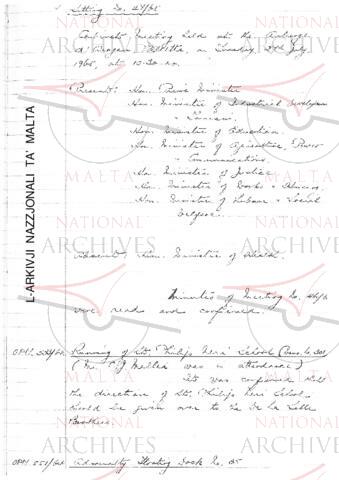 Sitting No. 47/65
Cabinet Meeting held at the Auberge
d'Aragon, Valletta, on Tuesday, July
1965, at 10.30 a.m.
Present: Hon. Prime Minister
Hon. Minister of Industrial Development
& Tourism
Hon. Minister of Education
Hon. Minister of Agriculture, Power
& Communications
Hon. Minister of Justice
Hon. Minister of Works & Housing
Hon. Minister of Labour & Social
Welfare.
Absent: Hon. Minister of Health.
Minutes of Meeting No. 46/65
were read and confirmed.
OPM. Running of St. Philip Neri School
(Mr. was in attendance)
It was confirmed that
the direction of St. Philip Neri School
should be given over to the De La Salle
Brothers.
OPM 551/64 Admiralty Floating Dock No. 35
L-ARKIVJI NAZZJONALI TA' MALTA
NATIONAL
ARCHIVES
MALTA